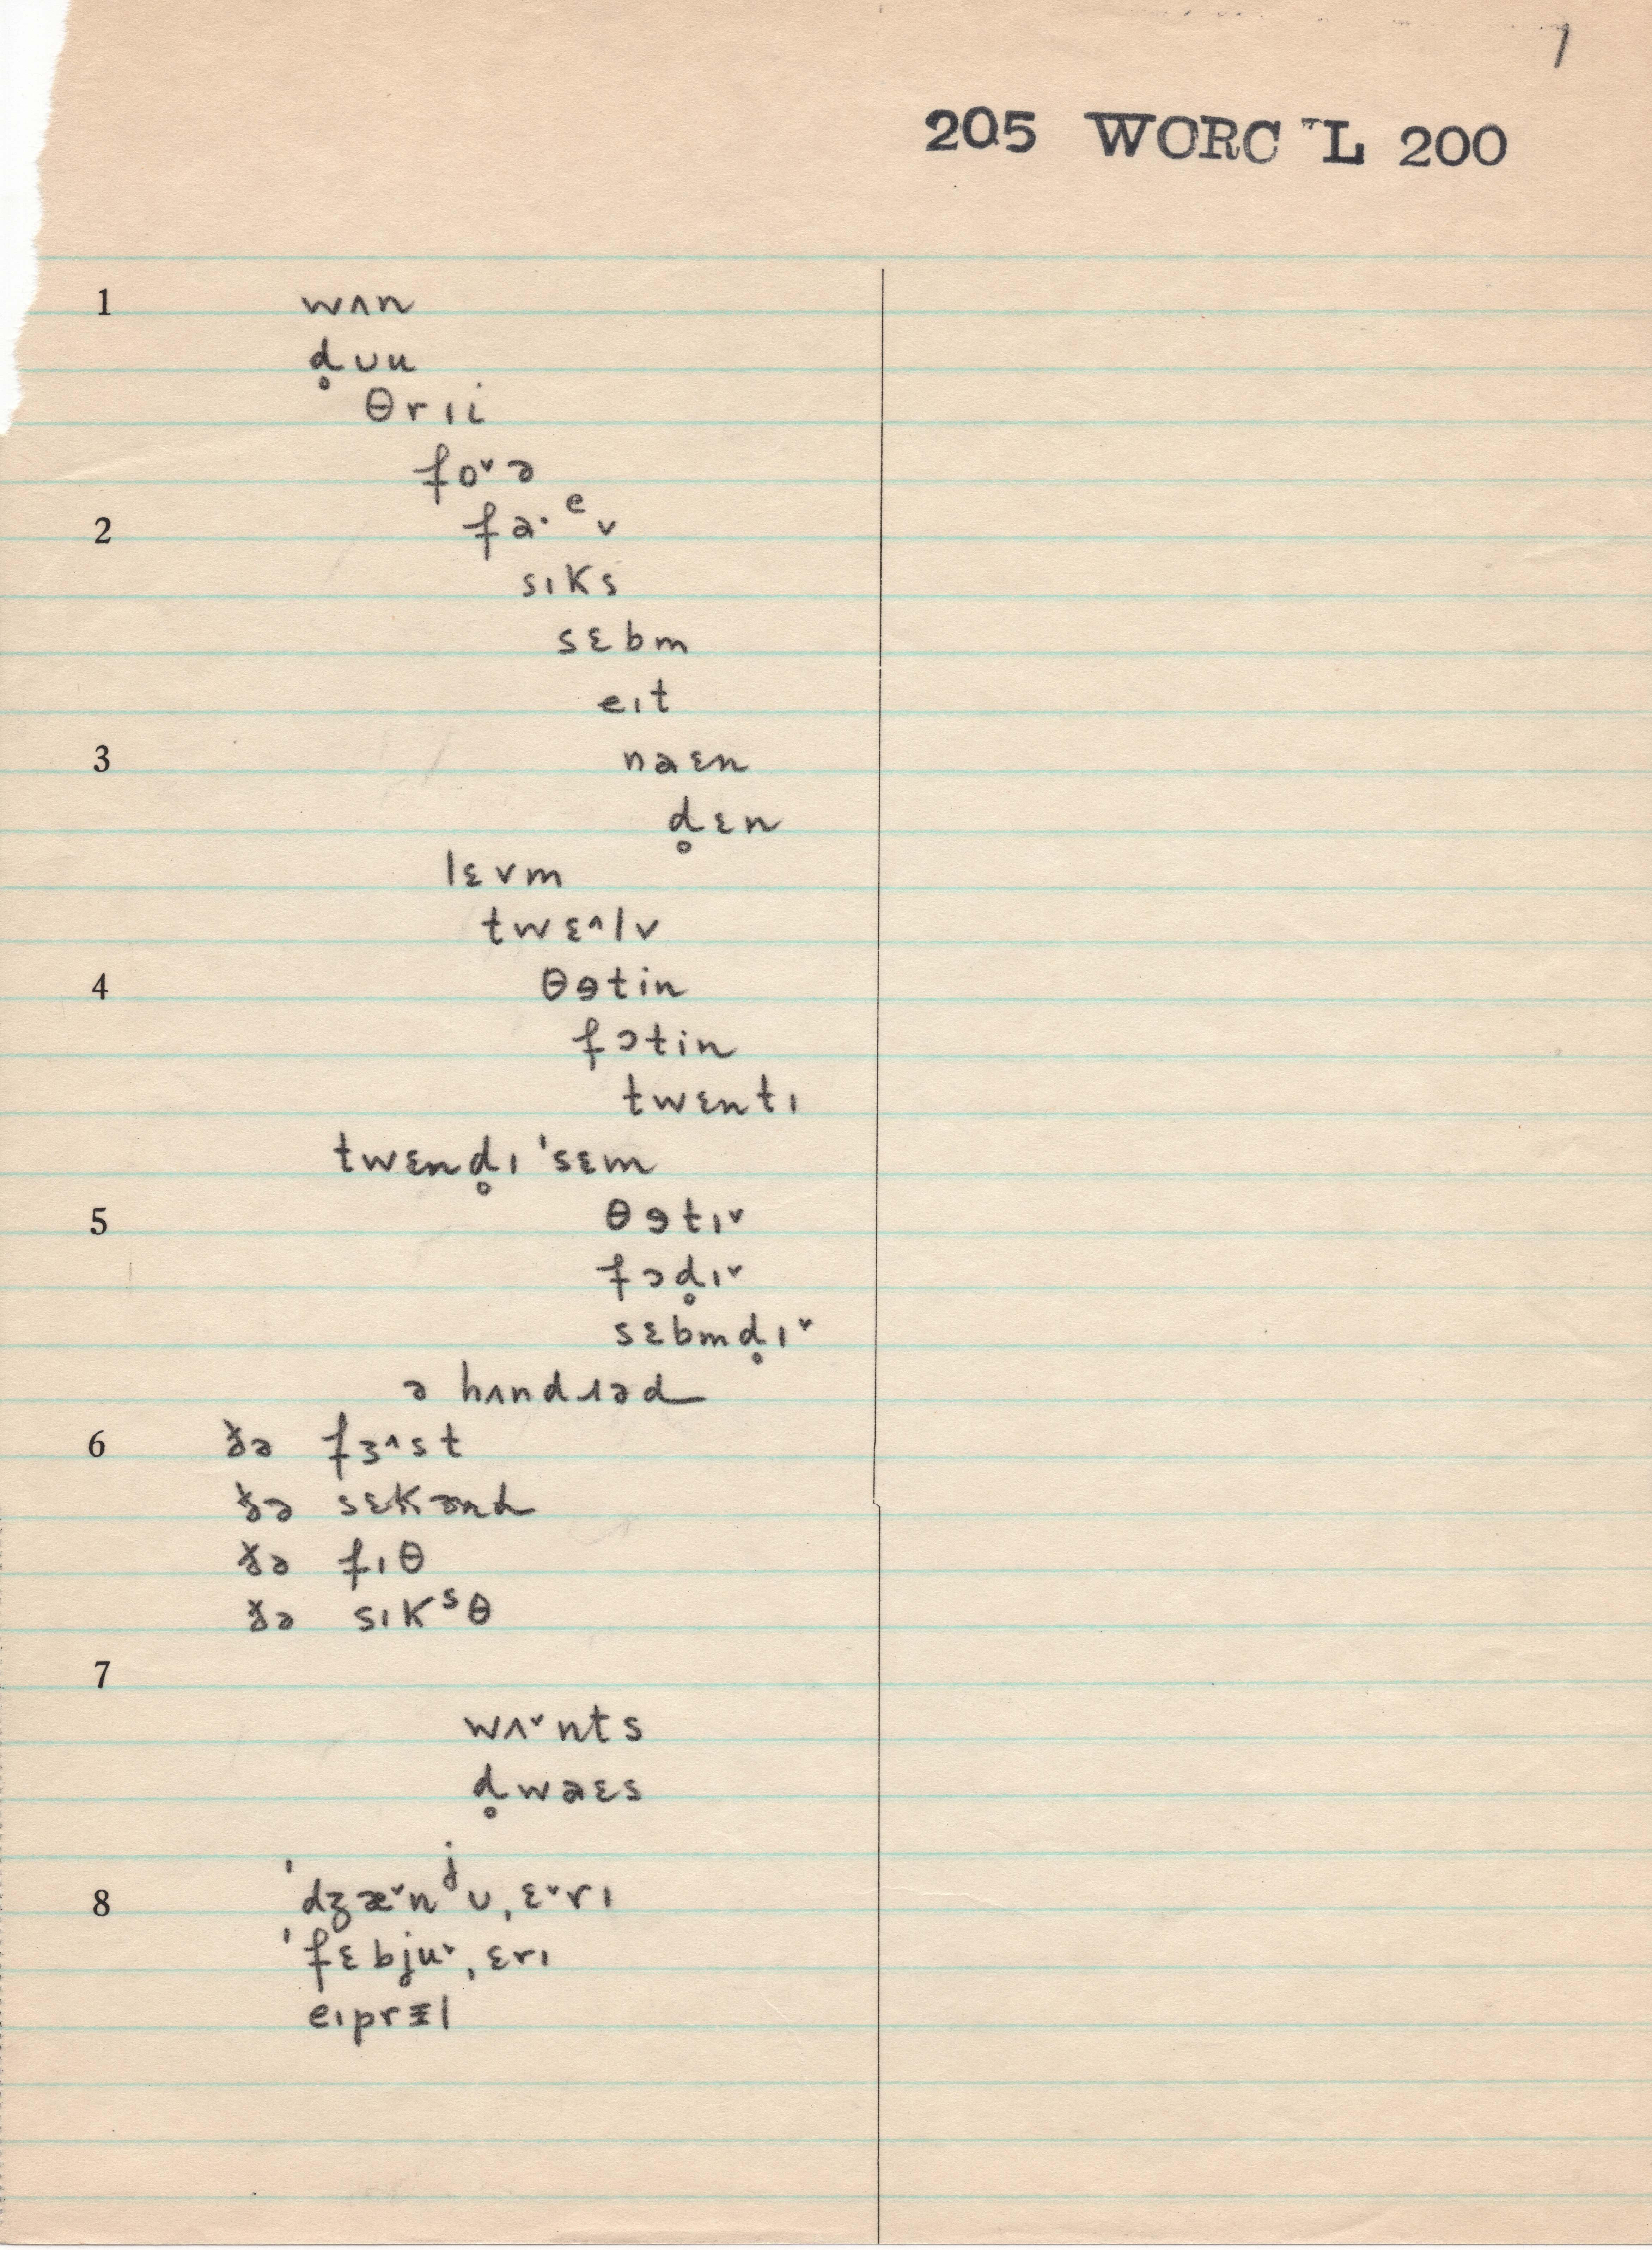 1
205 WORC L 200
1 wʌn
d̥ ʊu
θrɪi
fo˅ə
2 fa·ᵉv
sɪks
sɛbm
eɪt
3 naɛn
d̥ɛn
lɛvm
twɛ^lv
4 θɘtin
fɔtin
twɛntɪ
twɛnd̥ɪ ˈsɛm
5 θɘtɪ˅
fɔd̥ɪ˅
sɛbmd̥ɪ˅
ə hʌndɹəd
6 ðə fɜ^st
ðə sɛkənd
ðə fɪθ
ðə sɪkˢθ
7
wʌ˅nts
d̥waɛs
8 ˈdʒæ˅nʲʊˌɛ˅rɪ
ˈfɛbju˅ˌɛrɪ
eɪprɪ̵l